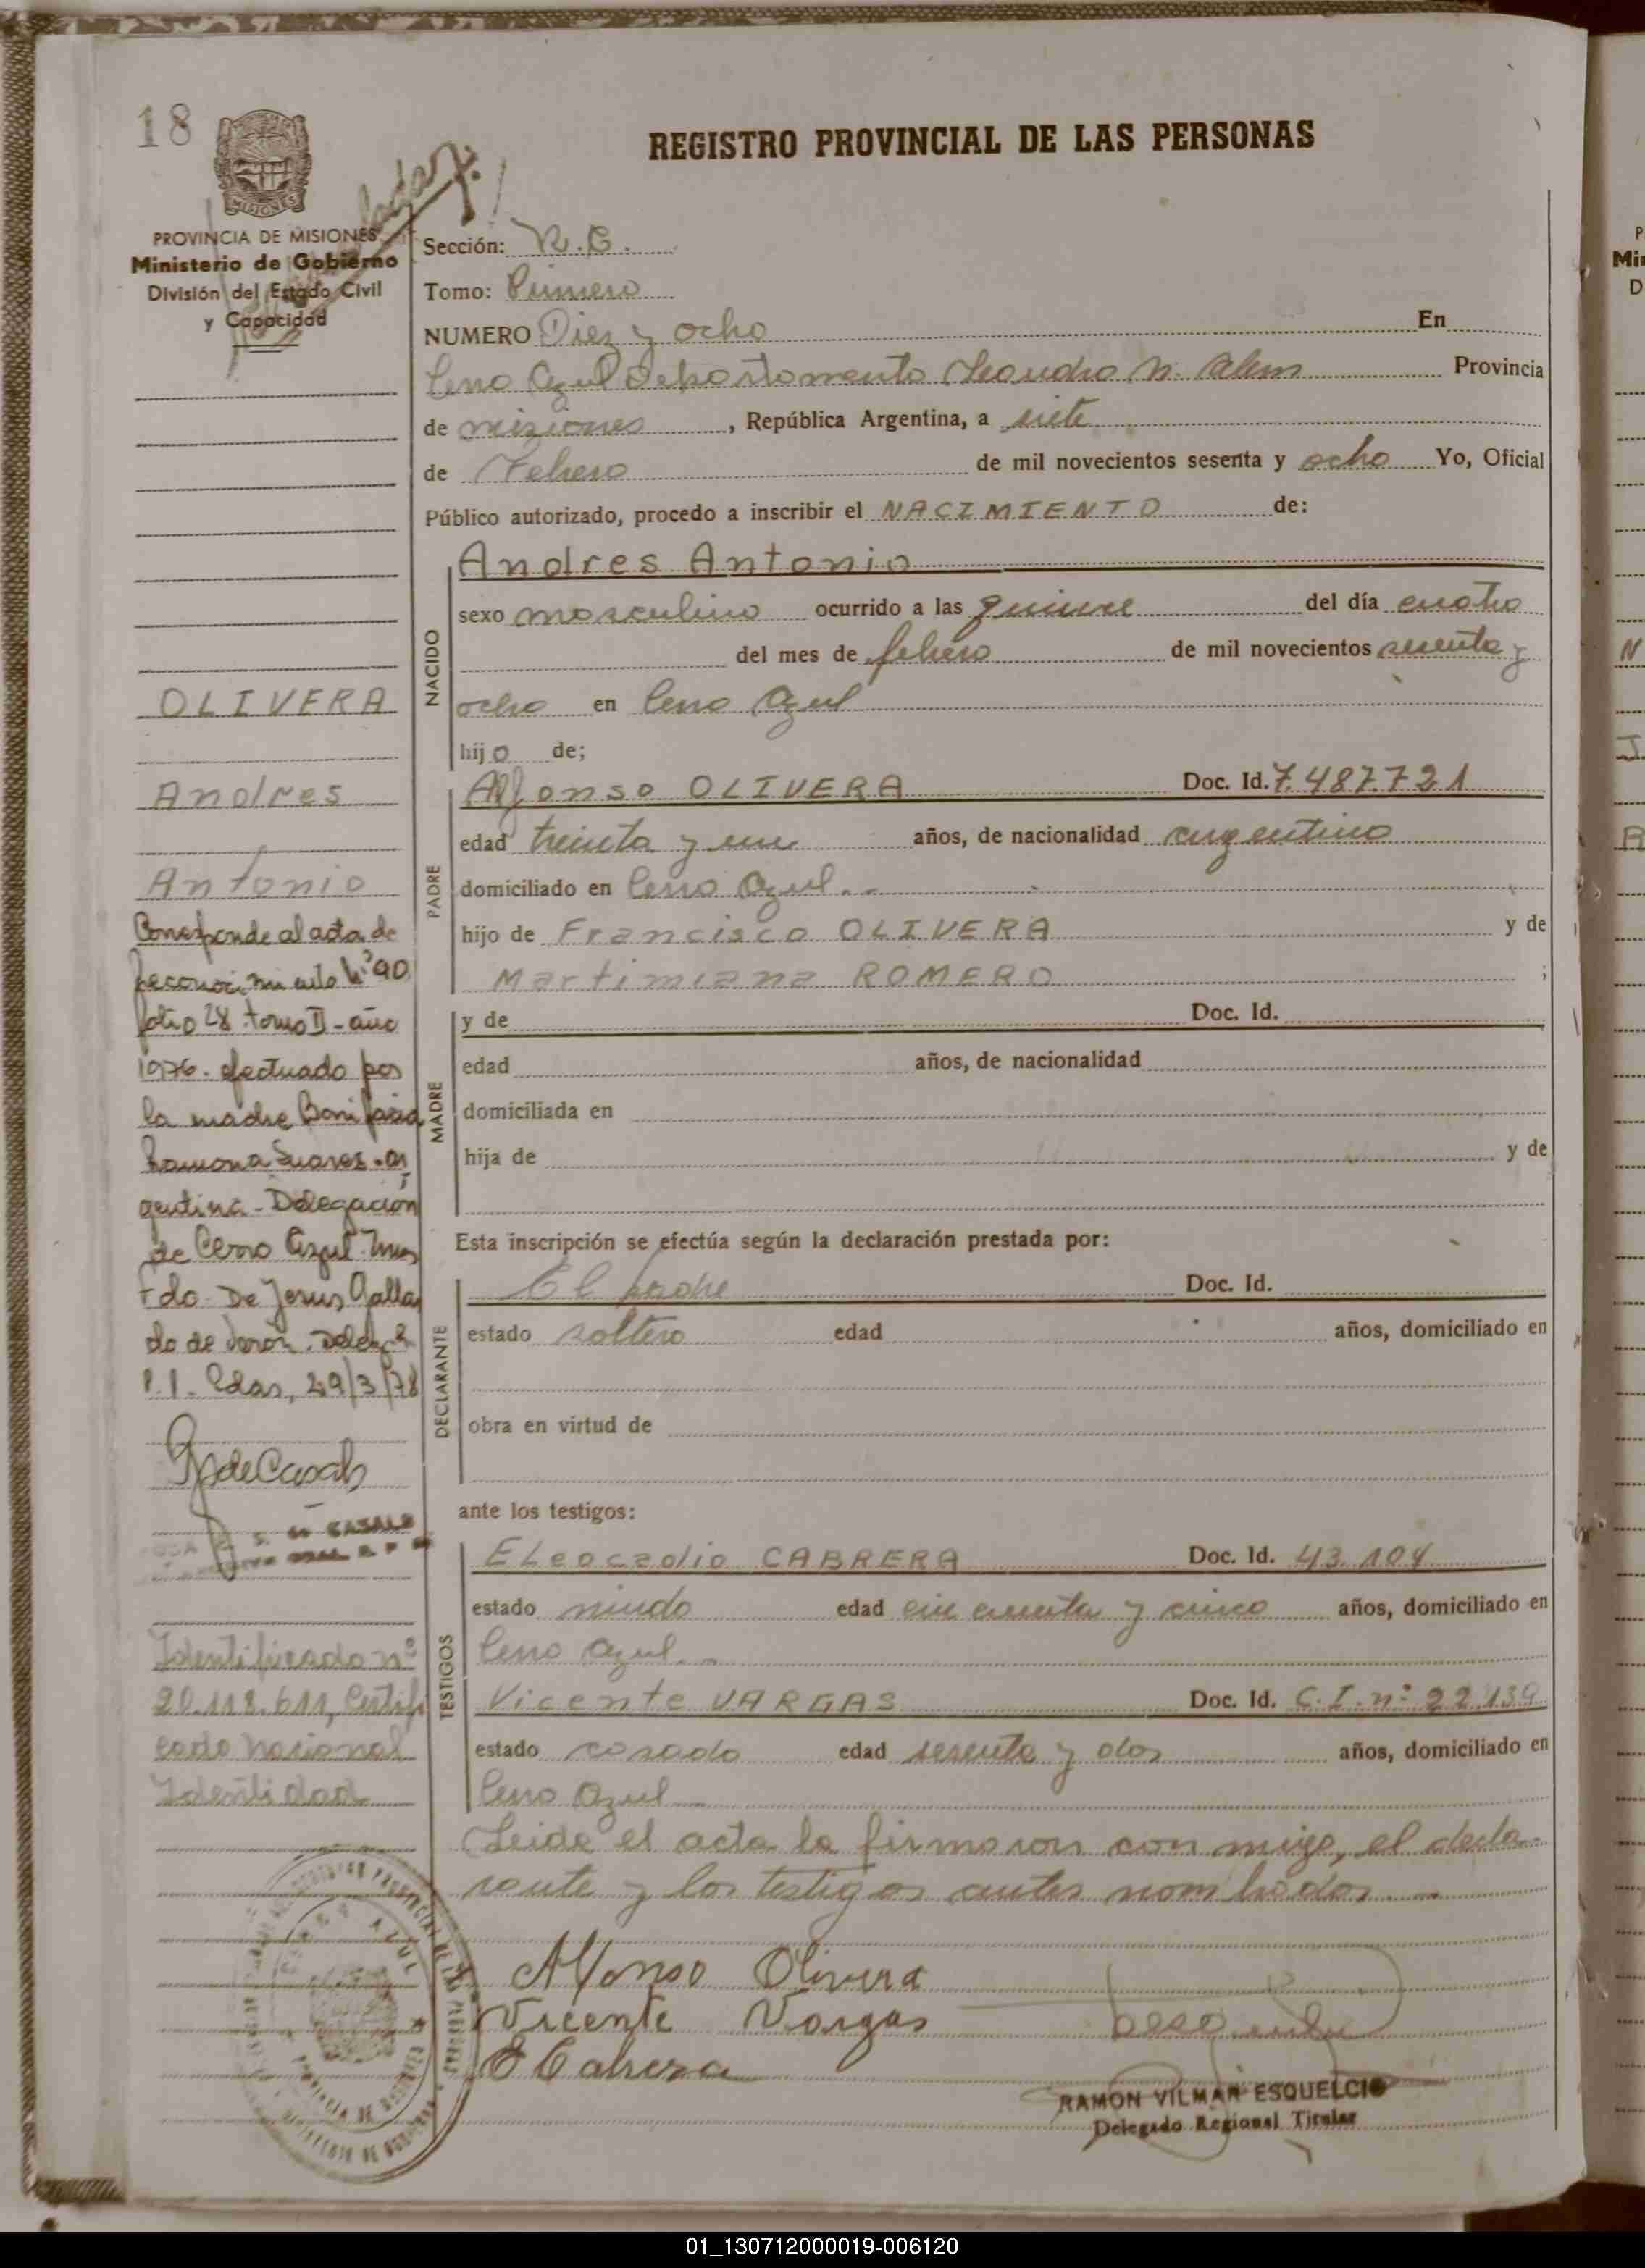 18
MISIONES
PROVINCIA DE MISIONES
Ministerio de Gobierno
División del Estado Civil
y Capacidad
REGISTRO PROVINCIAL DE LAS PERSONAS
Sección: R.C.
Tomo: Primero
NUMERO Diez y ocho En
Cerro Azul Departamento Leandro N. Alem Provincia
de misiones, República Argentina, a siete
de Febrero de mil novecientos sesenta y ocho Yo, Oficial
Público autorizado, procedo a inscribir el NACIMIENTO de:
NACIDO
Andres Antonio
sexo masculino ocurrido a las quince del día cuatro
del mes de febrero de mil novecientos sesenta y
ocho en Cerro Azul
hijo de;
PADRE
Alfonso OLIVERA Doc. Id. 7.487.721
edad treinta y un años, de nacionalidad argentino
domiciliado en Cerro Azul.--
hijo de Francisco OLIVERA y de
Martimiana ROMERO ;
MADRE
y de Doc. Id.
edad años, de nacionalidad
domiciliada en
hija de y de
Esta inscripción se efectúa según la declaración prestada por:
DECLARANTE
El padre Doc. Id.
estado soltero edad años, domiciliado en
obra en virtud de
ante los testigos:
TESTIGOS
ELeocadio CABRERA Doc. Id. 43.104
estado viudo edad cincuenta y cinco años, domiciliado en
Cerro Azul.--
Vicente VARGAS Doc. Id. C.I. nº 22.139
estado casado edad sesenta y dos años, domiciliado en
Cerro Azul
Leida el acta la firmaron con migo, el decla-
rante y los testigos antes nombrados.--
Alfonso Olivera
Vicente Vargas
E Cabrera
RAMON VILMAR ESQUELCIO
Delegado Regional Titular
OLIVERA
Andres
Antonio
Corresponde al acta de
reconocimiento Nº 90
folio 28 tomo II - año
1976. efectuado por
la madre Bonifacia
Ramona Suares. ar
gentina - Delegación
de Cerro Azul. Mnes
Fdo. De Jesus Galla
do de
Pdas, 29/3/78
de Casals
CASALS
Identificado nº
20.118.611, Certifi
cado Nacional
Identidad
CERRO AZUL
01_130712000019-006120